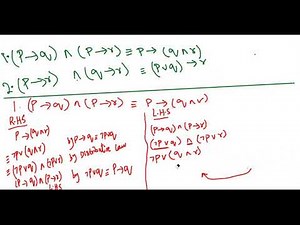 1. (P→q) ∧ (P→r) ≡ P→ (q∧r)
2. (P→r) ∧ (q→r) ≡ (P∨q) → r
1. (P→q) ∧ (P→r) ≡ P→ (q∧r)
R.H.S
P→(q∧r)
≡ ¬P∨(q∧r) by P→q ≡ ¬P∨q
≡ (¬P∨q) ∧ (¬P∨r) by Distributive Law
(P→q) ∧ (P→r) by ¬P∨q ≡ P→q
L.H.S
L.H.S
(P→q) ∧ (P→r)
(¬P∨q) ∧ (¬P∨r)
¬P∨ (q∧r)